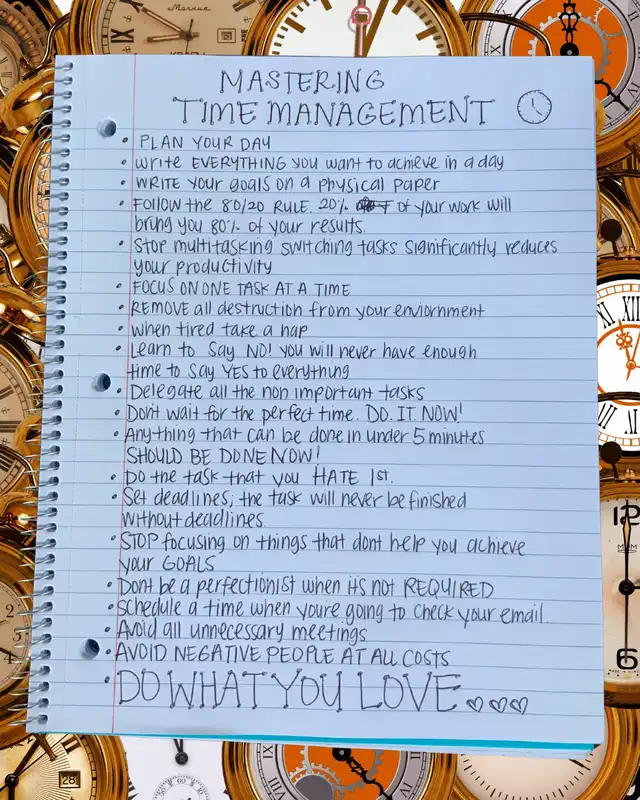 MASTERING
TIME MANAGEMENT
• PLAN YOUR DAY
• Write EVERYTHING YOU want to achieve in a day
• WRITE YOUR goals on a physical PAPER
• FOLLOW the 80/20 RULE. 20% of your work will
bring you 80% of your results.
• Stop multitasking switching tasks significantly reduces
your productivity
• FOCUS ON ONE TASK AT A TIME
• REMOVE all destruction from your enviornment
• when tired take a nap
• Learn to say NO! you will never have enough
time to say YES to everything
• Delegate all the non important tasks
• Dont wait for the perfect time. DO. IT. NOW!
• Anything that can be done in under 5 minutes
SHOULD BE DONE NOW!
• Do the task that you HATE 1st.
• Set deadlines, the task will never be finished
without deadlines.
• STOP focusing on things that dont help you achieve
your GOALS
• Dont be a perfectionist when it's not REQUIRED
• Schedule a time when youre going to check your email.
• Avoid all unnecessary meetings
• AVOID NEGATIVE PEOPLE AT ALL COSTS
• DO WHAT YOU LOVE